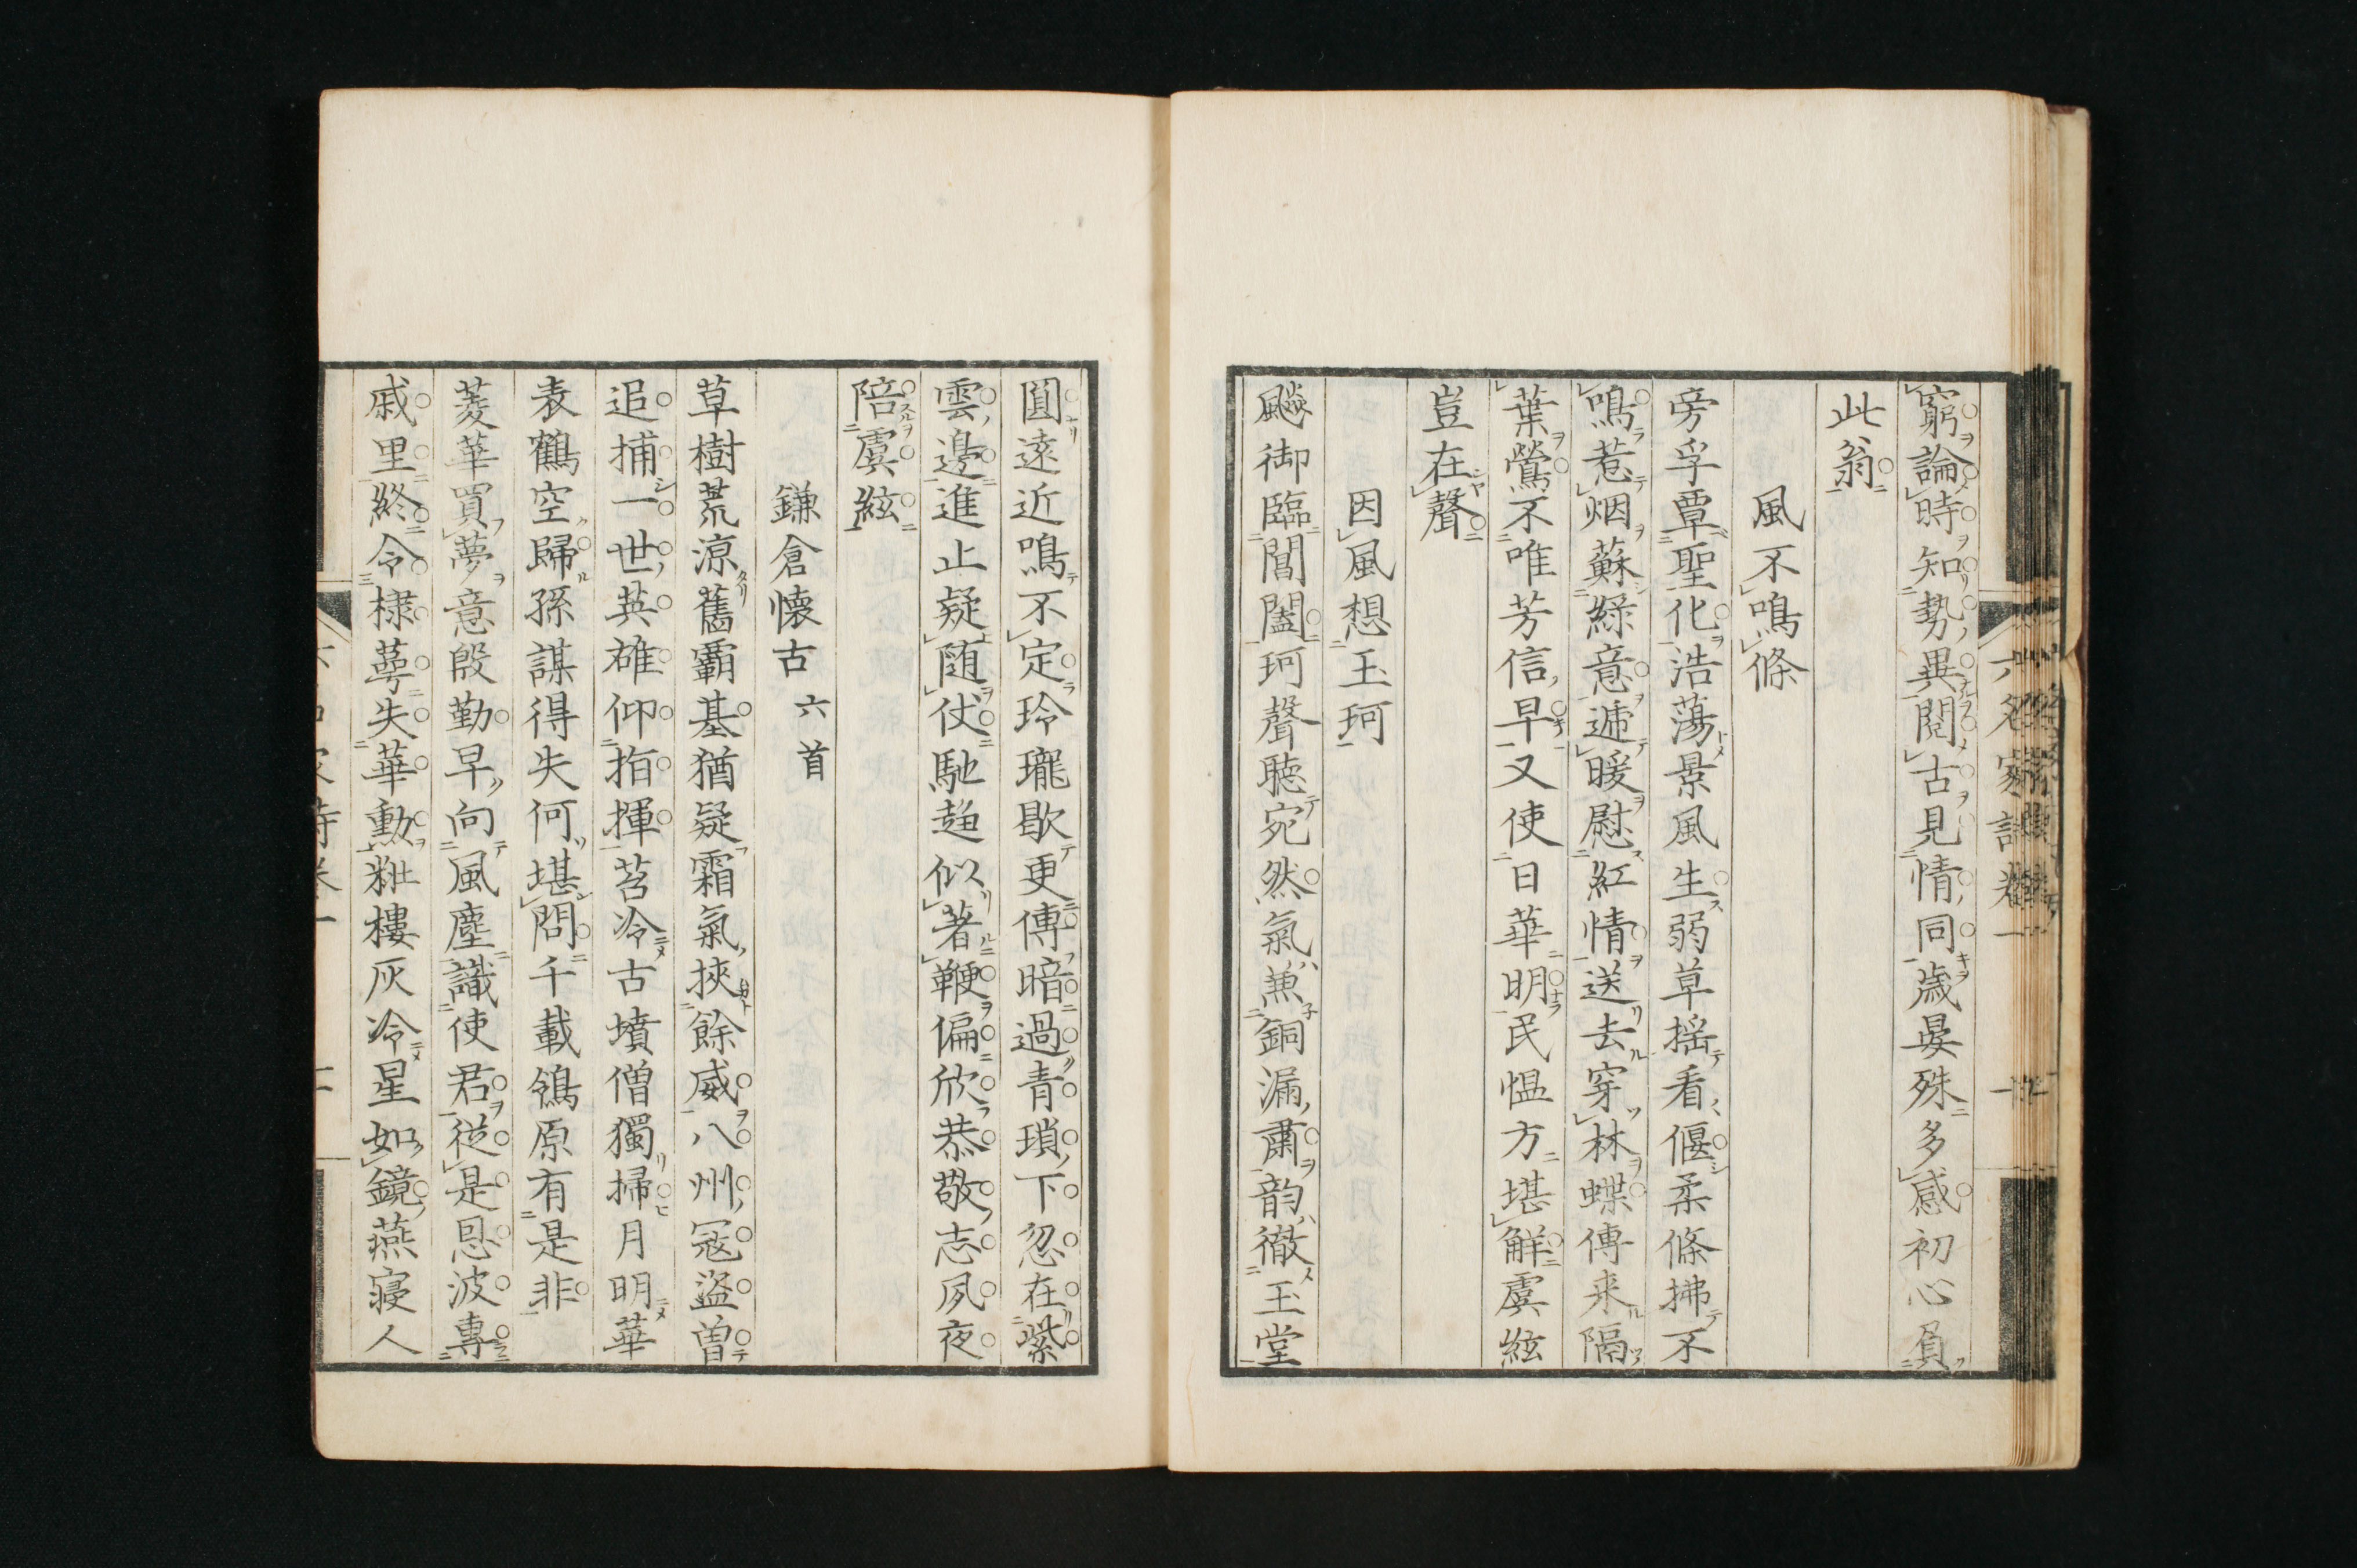 窮論時知勢異閱古見情同歳晏殊多感初心負
此翁
風不鳴條
旁孚覃聖化浩蕩景風生弱草揺看偃柔條拂不
鳴惹烟蘇緑意遞暖慰紅情送去穿林蝶傳来隔
葉鶯不唯芳信早又使日華明民愠方堪解虞絃
豈在聲
因風想玉珂
飈御臨閶闔珂聲聴宛然氣兼銅漏肅韵徹玉堂
圓遠近鳴不定玲瓏歇更傳暗過青瑣下忽在紫
雲邊進止疑随仗馳趍似著鞭偏欣恭敬志夙夜
陪虞絃
鎌倉懐古 六首
草樹荒涼舊霸基猶疑霜氣挾餘威八州冦盗曽
追捕一世英雄仰指揮苔冷古墳僧獨掃月明華
表鶴空歸孫謀得失何堪問千載鴒原有是非
菱華買夢意慇勤早向風塵識使君従是恩波專
戚里終令棣萼失華勳粧樓灰冷星如鏡燕寝人